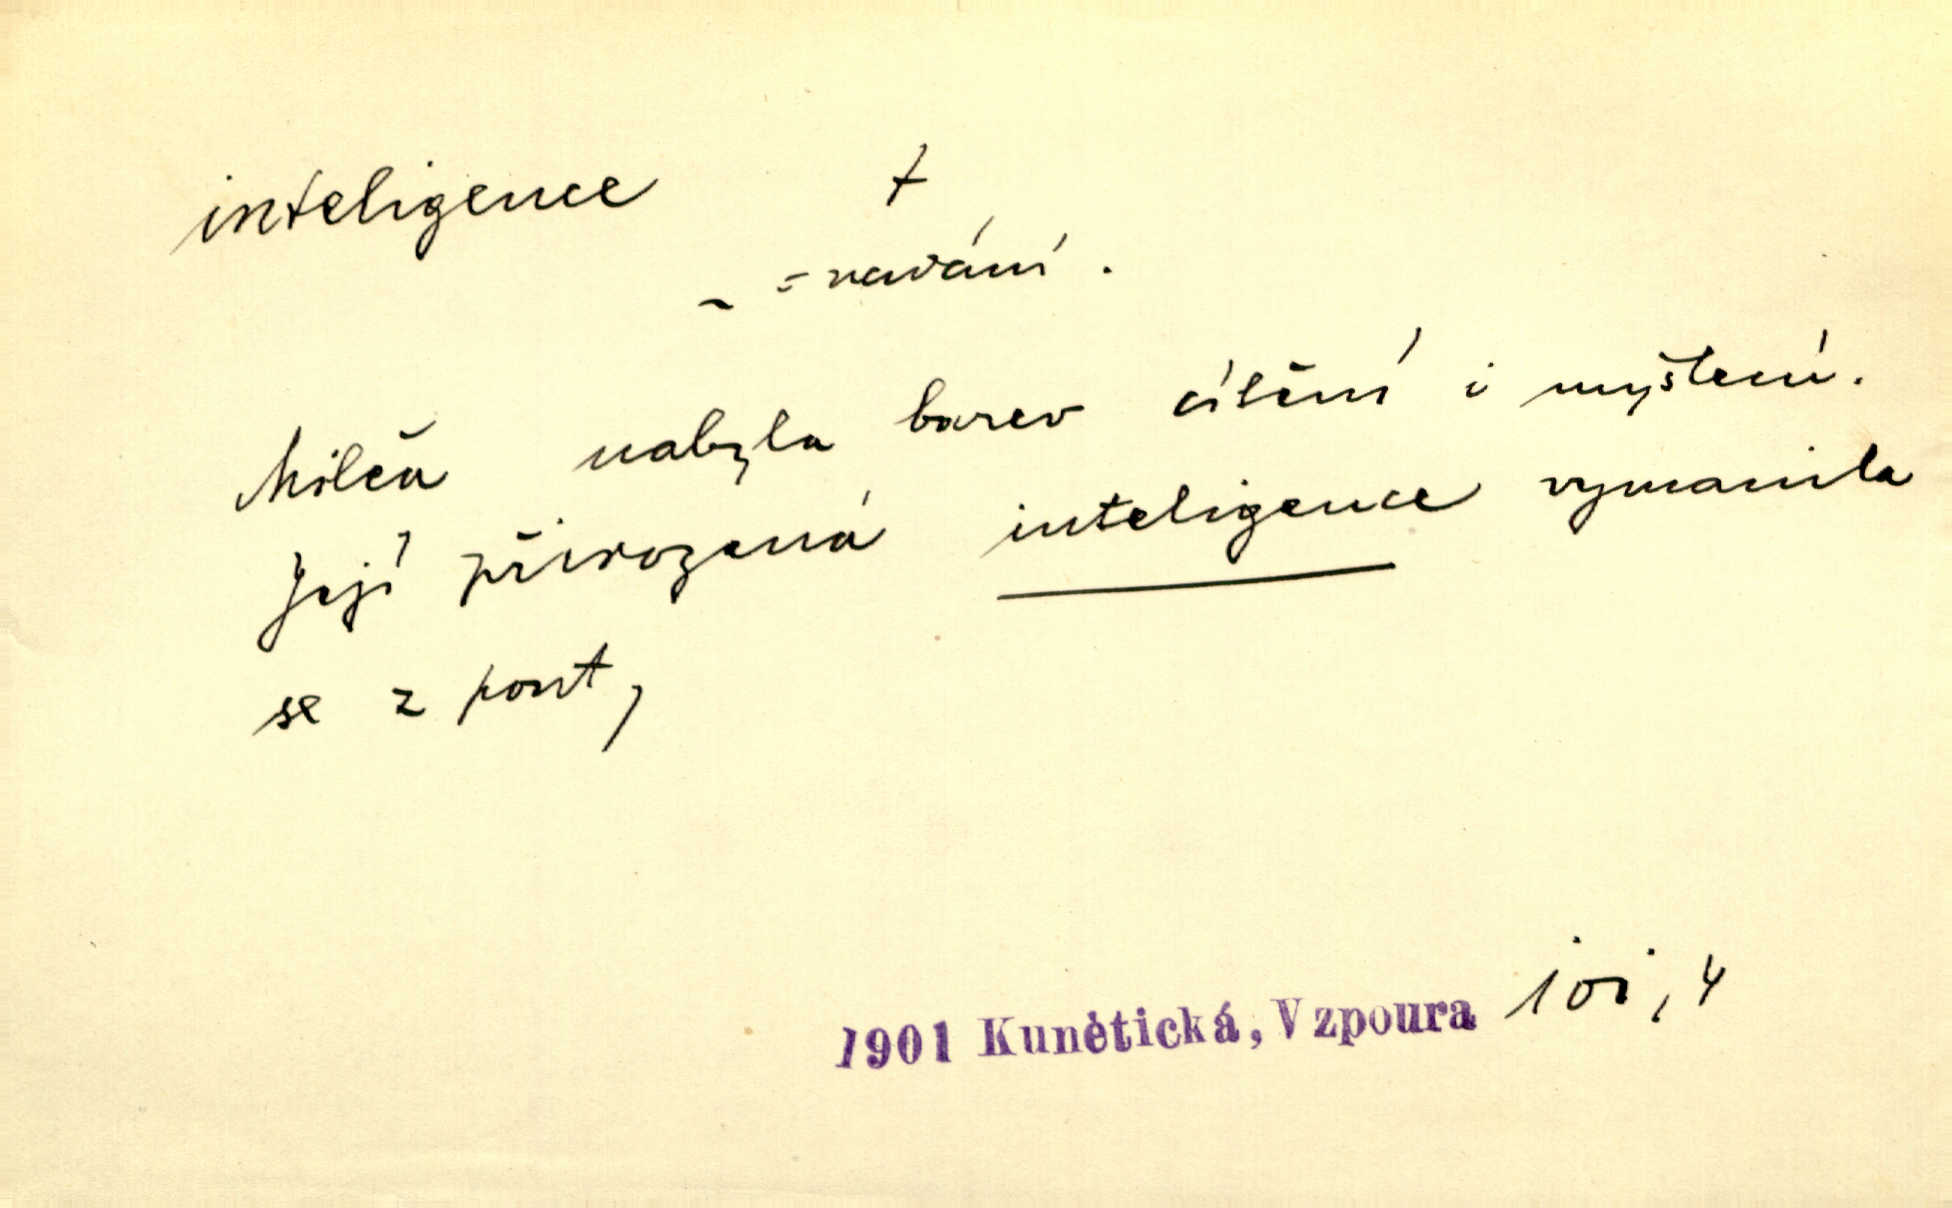 inteligence +
Milča nabyla barev cítění i myšlení.
Její přirozená inteligence vymanila
se z pout,
1901 Kunětická, Vzpoura 101, 4